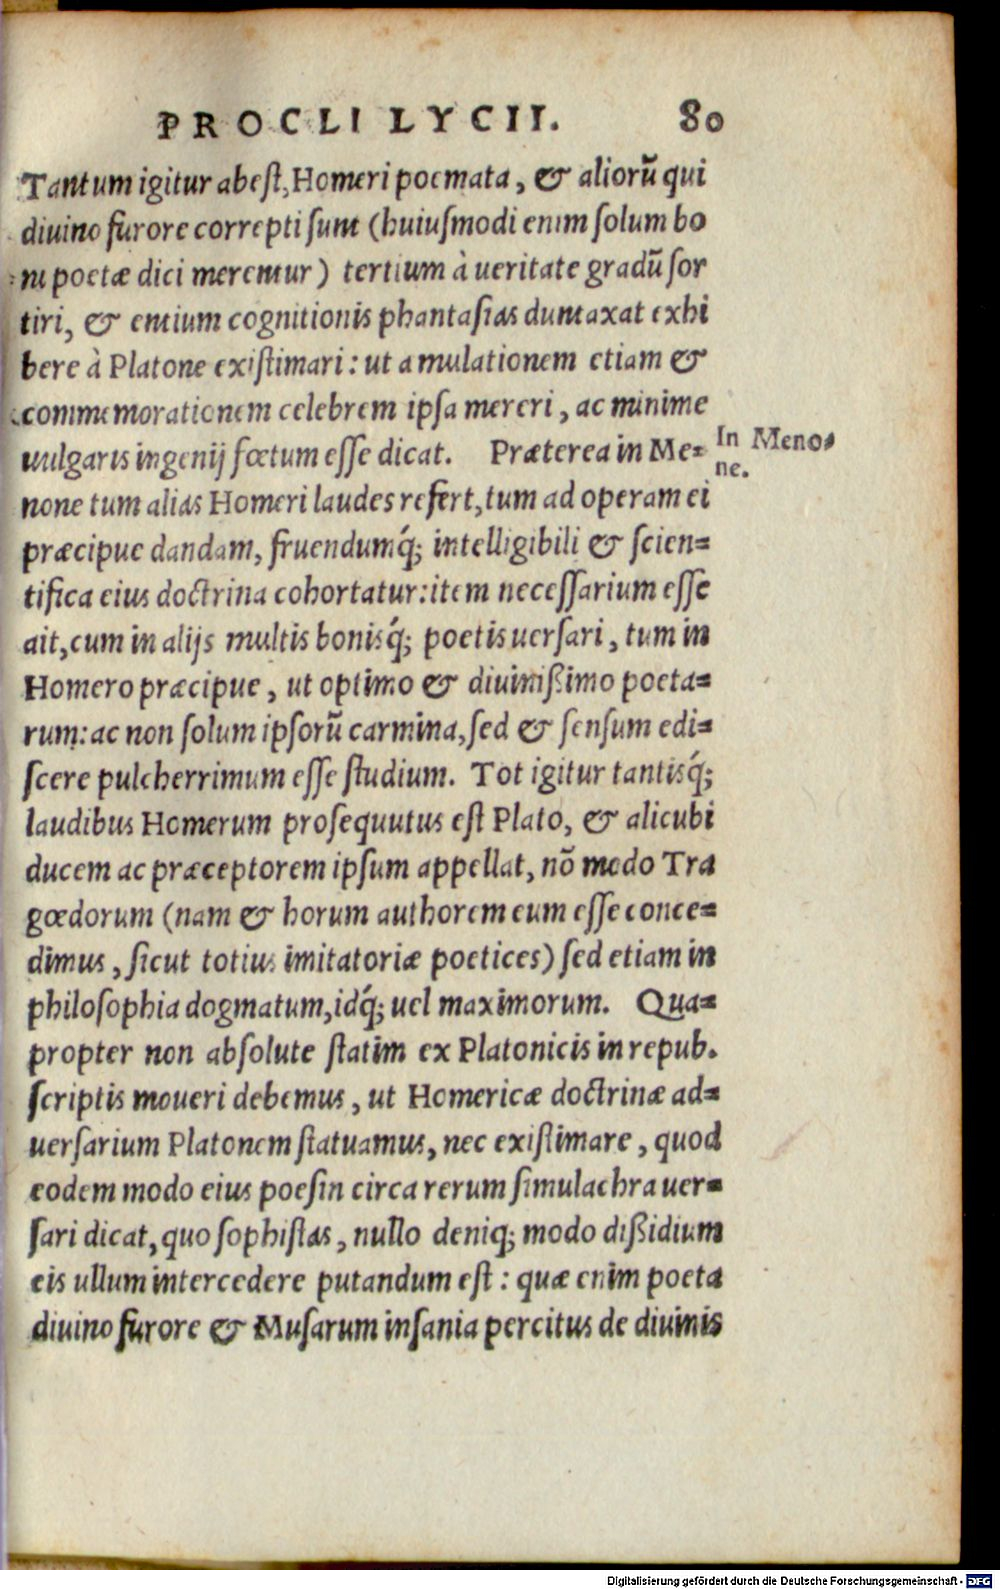 PROCLI LYCII. 80
Tantum igitur abest, Homeri poemata, & aliorū qui
diuino furore correpti sunt (huiusmodi enim solum bo
ni poetæ dici merentur) tertium à ueritate gradū sor
tiri, & entium cognitionis phantasias duntaxat exhi
bere à Platone existimari: ut amulationem etiam &
commemorationem celebrem ipsa mereri, ac minime
uulgaris ingenij fœtum esse dicat. Præterea in Me-
In Meno-
ne.
none tum alias Homeri laudes refert, tum ad operam ei
præcipue dandam, fruendumq́; intelligibili & scien-
tifica eius doctrina cohortatur: item necessarium esse
ait, cum in alijs multis bonisq́; poetis uersari, tum in
Homero præcipue, ut optimo & diuinißimo poeta-
rum: ac non solum ipsorū carmina, sed & sensum edi-
scere pulcherrimum esse studium. Tot igitur tantisq́;
laudibus Homerum prosequutus est Plato, & alicubi
ducem ac præceptorem ipsum appellat, nō modo Tra
gœdorum (nam & horum authorem eum esse conce-
dimus, sicut totius imitatoriæ poetices) sed etiam in
philosophia dogmatum, idq́; uel maximorum. Qua-
propter non absolute statim ex Platonicis in repub.
scriptis moueri debemus, ut Homericæ doctrinæ ad-
uersarium Platonem statuamus, nec existimare, quod
eodem modo eius poesin circa rerum simulachra uer-
sari dicat, quo sophistas, nullo deniq; modo dißidium
eis ullum intercedere putandum est: quæ enim poeta
diuino furore & Musarum insania percitus de diuinis
Digitalisierung gefördert durch die Deutsche Forschungsgemeinschaft - DFG